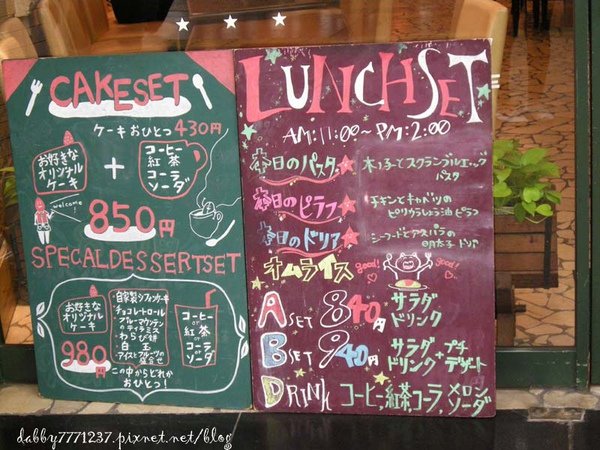 CAKESET
ケーキおひとつ430円
お好きな
オリジナル
ケーキ
+
コーヒー
紅茶
コーラ
ソーダ
welcome!
850円
SPECIALDESSERTSET
お好きな
オリジナル
ケーキ
980円
自家製シフォンケーキ
チョコレートロール
ブルーマウンテン
のティラミス
わらび餅
白玉
アイスとフルーツの
盛合せ
この中からどれか
おひとつ!
コーヒー
or
紅茶
or
コーラ
or
ソーダ
LUNCHSET
AM:11:00~PM:2:00
本日のパスタ
木の子とスクランブルエッグ
パスタ
本日のピラフ
チキンとキャベツの
ピリカラしょうゆ油ピラフ
本日のドリア
シーフードとアスパラの
明太子ドリア
オムライス
good!
good!
A SET 840円
サラダ
ドリンク
B SET 940円
サラダ
ドリンク
+
プチ
デザート
DRINK
コーヒー,紅茶,コーラ,メロン
ソーダ
dabby7771237.pixnet.net/blog